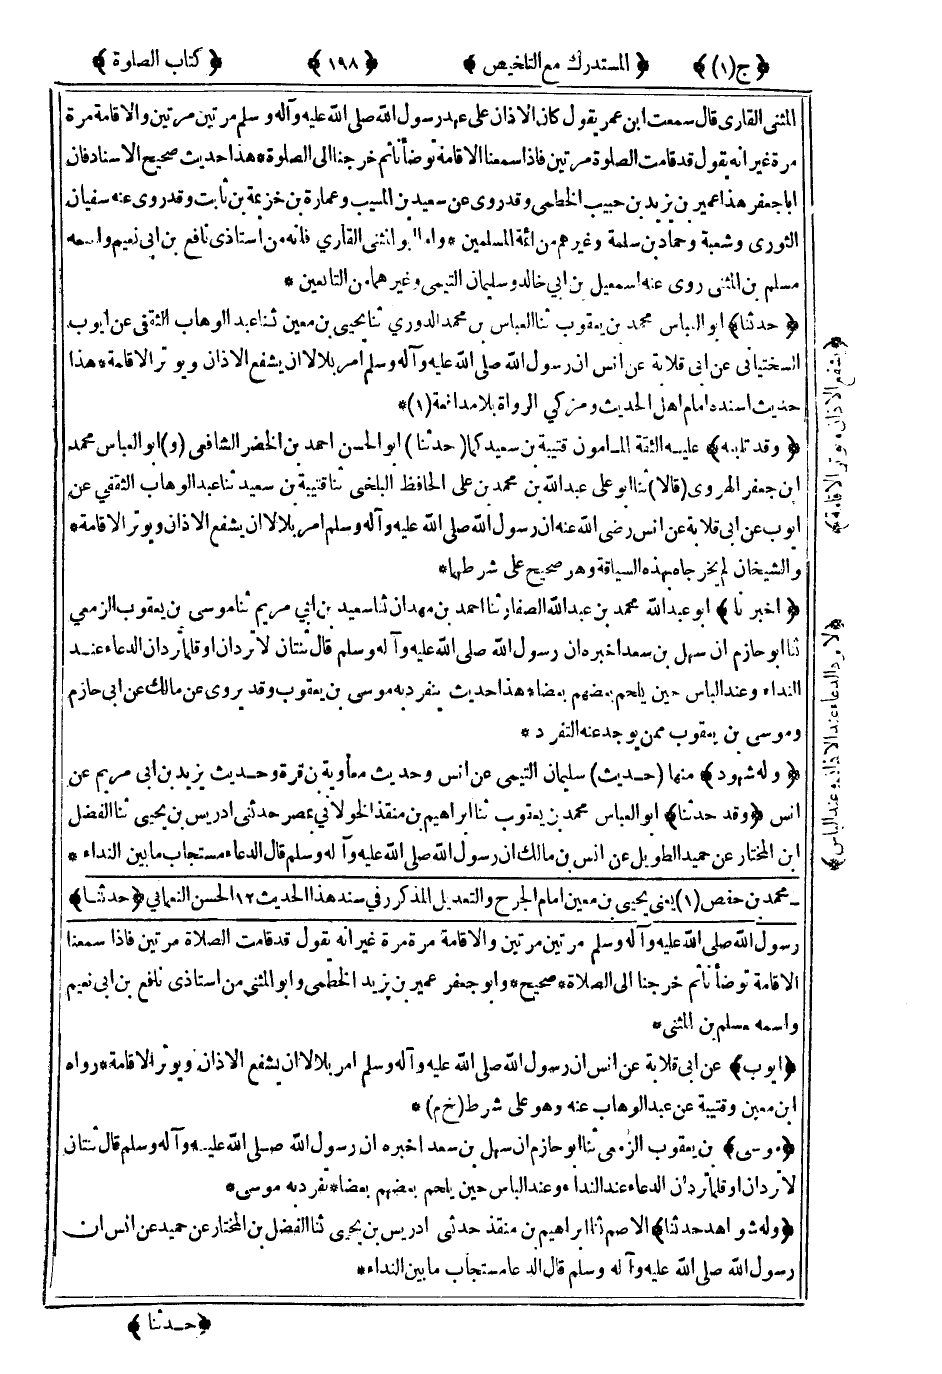 ﴿ ج(١) ﴾ ﴿ المستدرك مع التلخيص ﴾ ﴿ ١٩٨ ﴾ ﴿ كتاب الصلوة ﴾
المثنى القارى قال سمعت ابن عمر يقول كان الاذان على عهد رسول الله صلى الله عليه وآله وسلم مرتين مرتين والاقامة مرة
مرة غير انه يقول قد قامت الصلوة مرتين فاذا سمعنا الاقامة توضأنا ثم خرجنا الى الصلوة * هذا حديث صحيح الاسناد فان
ابا جعفر هذا عمير بن يزيد بن حبيب الخطمى وقد روى عن سعيد بن المسيب وعمارة بن خزيمة بن ثابت وقد روى عنه سفيان
الثورى وشعبة وحماد بن سلمة وغيرهم من ائمة المسلمين * واما ابو المثنى القاري فانه من استاذى نافع بن ابى نعيم واسمه
مسلم بن المثنى روى عنه اسمعيل بن ابي خالد وسليمان التيمى وغيرهما من التابعين *
﴿ حدثنا ﴾ ابو العباس محمد بن يعقوب ثنا العباس بن محمد الدوري ثنا يحيى بن معين ثنا عبد الوهاب الثقفى عن ايوب
السختيانى عن ابى قلابة عن انس ان رسول الله صلى الله عليه وآله وسلم امر بلالا ان يشفع الاذان ويوتر الاقامة * هذا
حديث اسنده امام اهل الحديث ومزكي الرواة بلا مدافعة (١) *
﴿ وقد تابعه ﴾ عليه الثقة المامون قتيبة بن سعيد كما (حدثنا) ابو الحسن احمد بن الخضر الشافعى (و) ابو العباس محمد
ابن جعفر الهروى (قالا) ثنا ابو على عبد الله بن محمد بن على الحافظ البلخى ثنا قتيبة بن سعيد ثنا عبد الوهاب الثقفي عن
ايوب عن ابى قلابة عن انس رضى الله عنه ان رسول الله صلى الله عليه وآله وسلم امر بلالا ان يشفع الاذان ويوتر الاقامة *
والشيخان لم يخرجاه بهذه السياقة وهو صحيح على شرطهما *
﴿ اخبرنا ﴾ ابو عبد الله محمد بن عبد الله الصفار ثنا احمد بن مهدان ثنا سعيد بن ابي مريم ثنا موسى بن يعقوب الزمعي
ثنا ابو حازم ان سهل بن سعد اخبره ان رسول الله صلى الله عليه وآله وسلم قال ثنتان لا تردان او قلما تردان الدعاء عند
النداء وعند الباس حين يلحم بعضهم بعضا * هذا حديث ينفرد به موسى بن يعقوب وقد يروى عن مالك عن ابى حازم
وموسى بن يعقوب ممن يوجد عنه التفرد *
﴿ وله شهود ﴾ منها (حديث) سليمان التيمى عن انس وحديث معاوية بن قرة وحديث يزيد بن ابى مريم عن
انس ﴿ وقد حدثنا ﴾ ابو العباس محمد بن يعقوب ثنا ابراهيم بن منقذ الخولاني بمصر حدثنى ادريس بن يحيى ثنا الفضل
ابن المختار عن حميد الطويل عن انس بن مالك ان رسول الله صلى الله عليه وآله وسلم قال الدعاء مستجاب ما بين النداء *
ـ محمد بن حفص (١) يعنى يحيى بن معين امام الجرح والتعديل المذكور في سند هذا الحديث ١٢ الحسن النعمانى ﴿ حدثنا ﴾
رسول الله صلى الله عليه وآله وسلم مرتين مرتين والاقامة مرة مرة غير انه يقول قد قامت الصلاة مرتين فاذا سمعنا
الاقامة توضأنا ثم خرجنا الى الصلاة * صحيح * وابو جعفر عمير بن يزيد الخطمى وابو المثنى من استاذى نافع بن ابى نعيم
واسمه مسلم بن المثنى *
﴿ ايوب ﴾ عن ابى قلابة عن انس ان رسول الله صلى الله عليه وآله وسلم امر بلالا ان يشفع الاذان ويوتر الاقامة * رواه
ابن معين وقتيبة عن عبد الوهاب عنه وهو على شرط (خ م) *
﴿ موسى ﴾ بن يعقوب الزمعى ثنا ابو حازم ان سهل بن سعد اخبره ان رسول الله صلى الله عليه وآله وسلم قال ثنتان
لا تردان او قلما تردان الدعاء عند النداء وعند الباس حين يلحم بعضهم بعضا * تفرد به موسى *
﴿ وله شواهد حدثنا ﴾ الاصم ثنا ابراهيم بن منقذ حدثنى ادريس بن يحيى ثنا الفضل بن المختار عن حميد عن انس ان
رسول الله صلى الله عليه وآله وسلم قال الدعا مستجاب ما بين النداء *
﴿ حدثنا ﴾
﴿ يشفع الاذان ويوتر الاقامة ﴾
﴿ لا يرد الدعاء عند الاذان وعند الباس ﴾